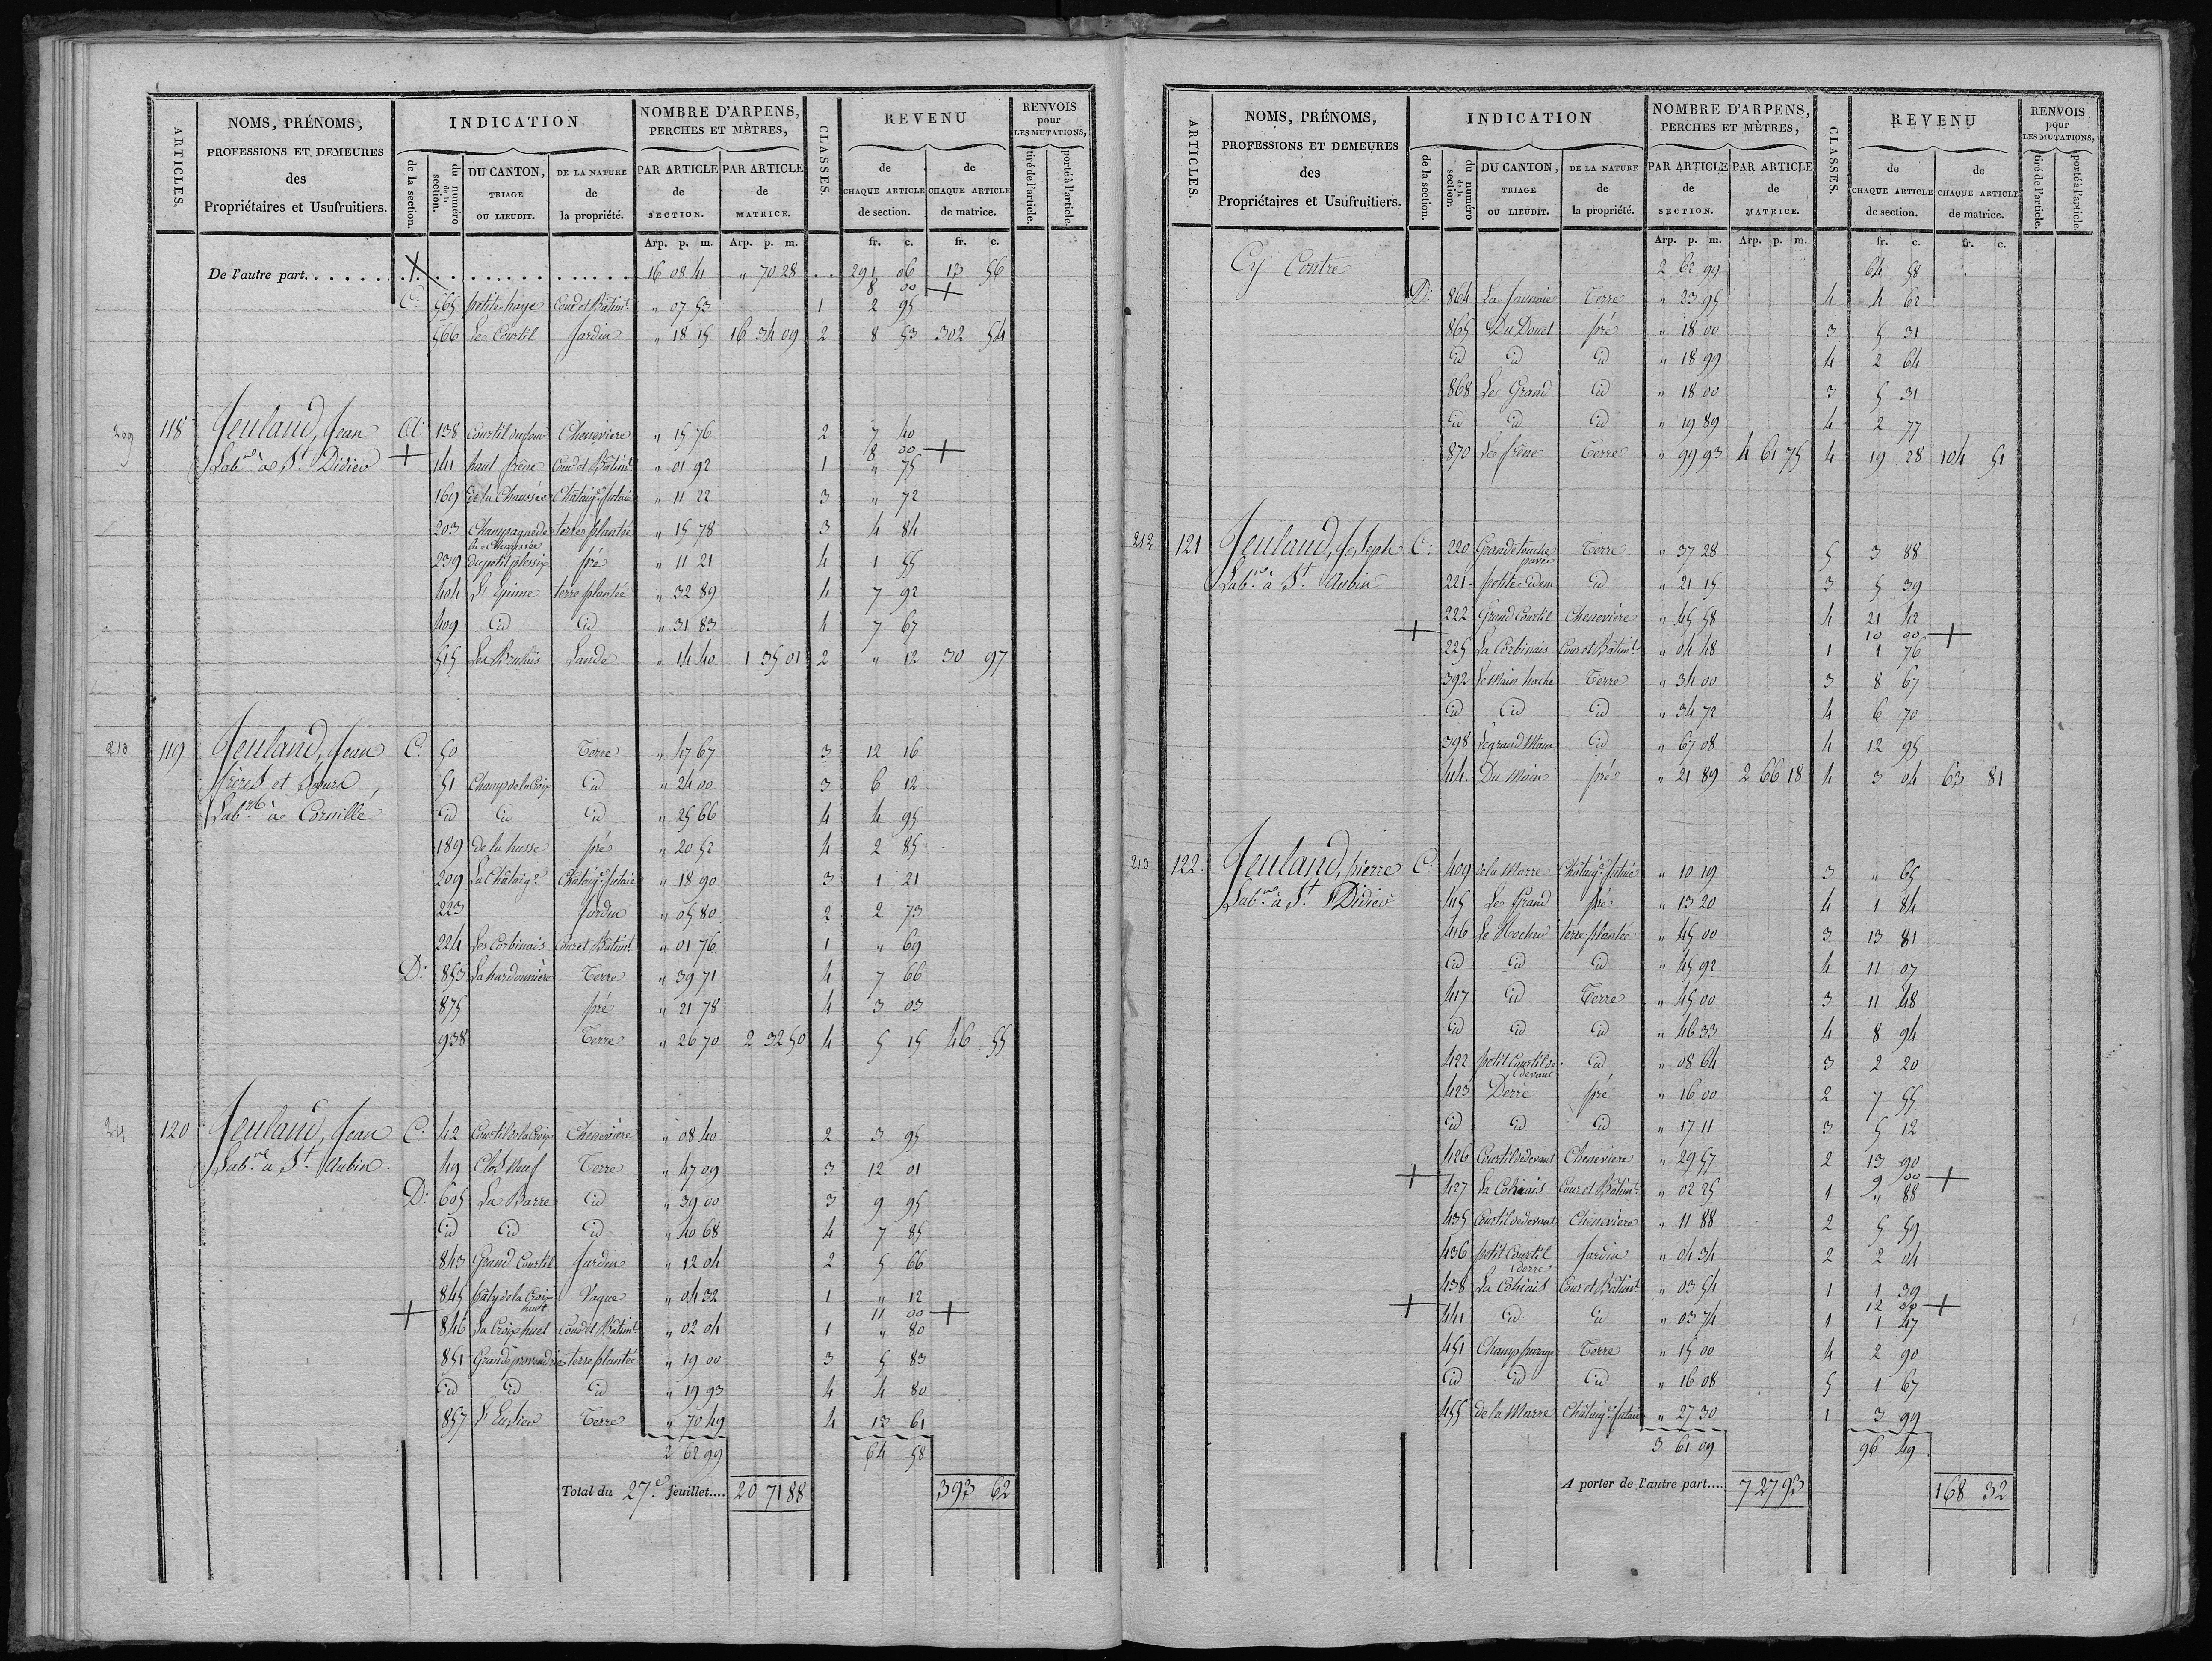 ARTICLES.
NOMS, PRÉNOMS,
PROFESSIONS ET DEMEURES
des
Propriétaires et Usufruitiers.
INDICATION
de la section.
du numéro de la section.
DU CANTON, TRIAGE OU LIEUDIT.
DE LA NATURE de la propriété.
NOMBRE D'ARPENS, PERCHES ET MÈTRES,
PAR ARTICLE de SECTION.
PAR ARTICLE de MATRICE.
CLASSES.
REVENU
de CHAQUE ARTICLE de section.
de CHAQUE ARTICLE de matrice.
RENVOIS pour LES MUTATIONS,
tiré de l'article.
porté à l'article.
Arp. p. m. Arp. p. m. fr. c. fr. c.
De l'autre part. 16 08 41 " 70 28 291 06 13 56
8 00 +
C. 565 petite haye Cour et Bâtimt. " 07 53 1 2 95
566 Le Courtil Jardin " 18 15 16 34 09 2 8 53 302 54
209 118 Jeuland, Jean A. 138 Courtil du four Chenevière " 15 76 2 7 40
8 00 +
Labr. à St. Didier + 141 haut frêne Cour et Bâtimt. " 01 92 1 " 75
169 de la Chaussée Châtaig. futaie " 11 22 3 " 72
203 Champagne de la Chaussée terre plantée " 15 78 3 4 84
239 du petit plessix pré " 11 21 4 1 55
404 L'Epinne terre plantée " 32 89 4 7 92
409 id id " 31 83 4 7 67
515 Les Brulais Lande " 14 40 1 35 01 2 " 12 30 97
210 119 Jeuland, Jean C. 50 Terre " 47 67 3 12 16
frères et soeurs 51 Champ de la Croix id " 24 00 3 6 12
Labrs. à Cornillé id id id " 25 66 4 4 95
189 de la husse pré " 20 52 4 2 85
209 La Châtaig. Châtaig. futaie " 18 90 3 1 21
223 Jardin " 05 80 2 2 73
224 Les Corbinais Cour et Bâtimt. " 01 76 1 " 69
D. 853 La hardonnière Terre " 39 71 4 7 66
875 pré " 21 78 4 3 03
938 Terre " 26 70 2 32 50 4 5 15 46 55
211 120 Jeuland, Jean C. 42 Courtil de la Croix Chenevière " 08 40 2 3 95
Labr. à St. Aubin. 49 Clos Neuf Terre " 47 09 3 12 01
D. 605 La Barre id " 39 00 3 9 95
id id id " 40 68 4 7 85
843 Grand Courtil Jardin " 12 04 2 5 66
845 pâty de la Croix huet Vague " 04 32 1 " 12
11 00 +
+ 846 La Croix huet Cour et Bâtimt. " 02 04 1 " 80
851 Grande provendrie terre plantée " 19 00 3 5 83
id id id " 19 93 4 4 80
857 Terre " 70 49 4 13 61
2 62 99 64 58
Total du 27e. feuillet.... 20 71 88 393 62
ARTICLES.
NOMS, PRÉNOMS,
PROFESSIONS ET DEMEURES
des
Propriétaires et Usufruitiers.
INDICATION
de la section.
du numéro de la section.
DU CANTON, TRIAGE OU LIEUDIT.
DE LA NATURE de la propriété.
NOMBRE D'ARPENS, PERCHES ET MÈTRES,
PAR ARTICLE de SECTION.
PAR ARTICLE de MATRICE.
CLASSES.
REVENU
de CHAQUE ARTICLE de section.
de CHAQUE ARTICLE de matrice.
RENVOIS pour LES MUTATIONS,
tiré de l'article.
porté à l'article.
Arp. p. m. Arp. p. m. fr. c. fr. c.
Cy Contre 2 62 99 64 58
D. 864 La Jaunaie Terre " 23 95 4 4 62
865 Du Douet pré " 18 00 3 5 31
id id id " 18 99 4 2 64
868 Le Grand id " 18 00 3 5 31
id id id " 19 89 4 2 77
870 Le frêne Terre " 99 93 4 61 75 4 19 28 104 51
212 121 Jeuland, Joseph C. 220 Grande touche pavée Terre " 37 28 5 3 88
Labr. à St. Aubin 221 petite idem id " 21 15 3 5 39
222 Grand Courtil Chenevière " 45 58 4 21 42
10 00 +
+ 225 La Corbinais Cour et Bâtimt. " 04 48 1 1 76
392 Le Main hache Terre " 34 00 3 8 67
id id id " 34 72 4 6 70
398 Le grand Main id " 67 08 4 12 95
44. Du Main pré " 21 89 2 66 18 4 3 04 63 81
213 122. Jeuland, pierre C. 409 de la Marre Châtaig. futaie " 10 19 3 " 65
Labr. à St. Didier 415 Le Grand pré " 13 20 4 1 84
416 Le Rocher terre plantée " 45 00 3 13 81
id id id " 45 92 4 11 07
417 id Terre " 45 00 3 11 48
id id id " 46 33 4 8 94
422 petit Courtil de devant id " 08 64 3 2 20
423 Derré pré " 16 00 2 7 55
id id id " 17 11 3 5 12
426 Courtil de devant Chenevière " 29 57 2 13 90
9 00 +
+ 427 La Cohiais Cour et Bâtimt. " 02 25 1 " 88
435 Courtil de devant Chenevière " 11 88 2 5 59
436 petit Courtil derré Jardin " 04 34 2 2 04
438 La Cohiais Cour et Bâtimt. " 03 54 1 1 39
12 00 +
+ 441 id id " 03 74 1 1 47
451 Terre " 15 00 4 2 90
id id id " 16 08 5 1 67
455 de la Marre Châtaig. futaie " 27 30 1 3 99
3 61 09 96 49
A porter de l'autre part.... 7 27 93 168 32